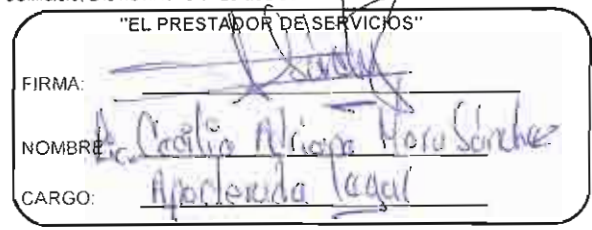 "EL PRESTADOR DE SERVICIOS"
FIRMA:
NOMBRE Lic. Cecilia Adriana Mora Sánchez
CARGO: Apoderada Legal